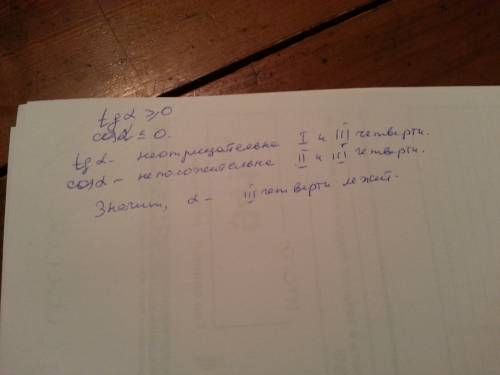 tg α ⩾ 0
cos α ≤ 0.
tg α - неотрицательна I и III четверти.
cos α - неположительна II и III четверти.
Значит, α - III четверти лежит.